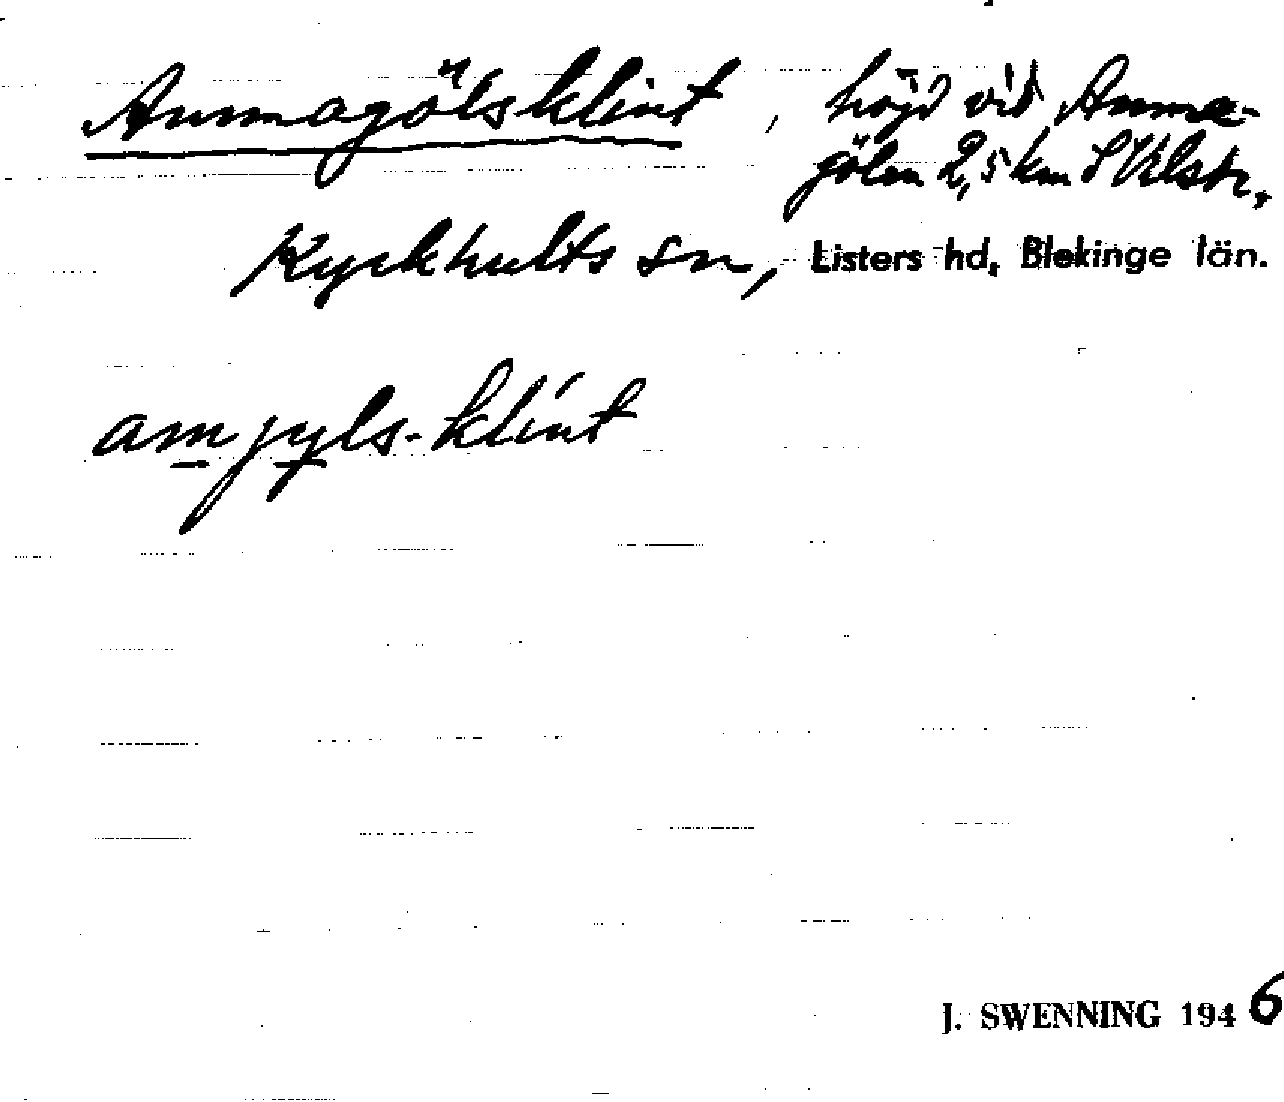 Annagölsklint, höjd vid Anna-
gölen 2,5 km S Vilstr,
Kyrkhults sn, Listers hd, Blekinge län.
am jyls-klint
J. SWENNING 1946